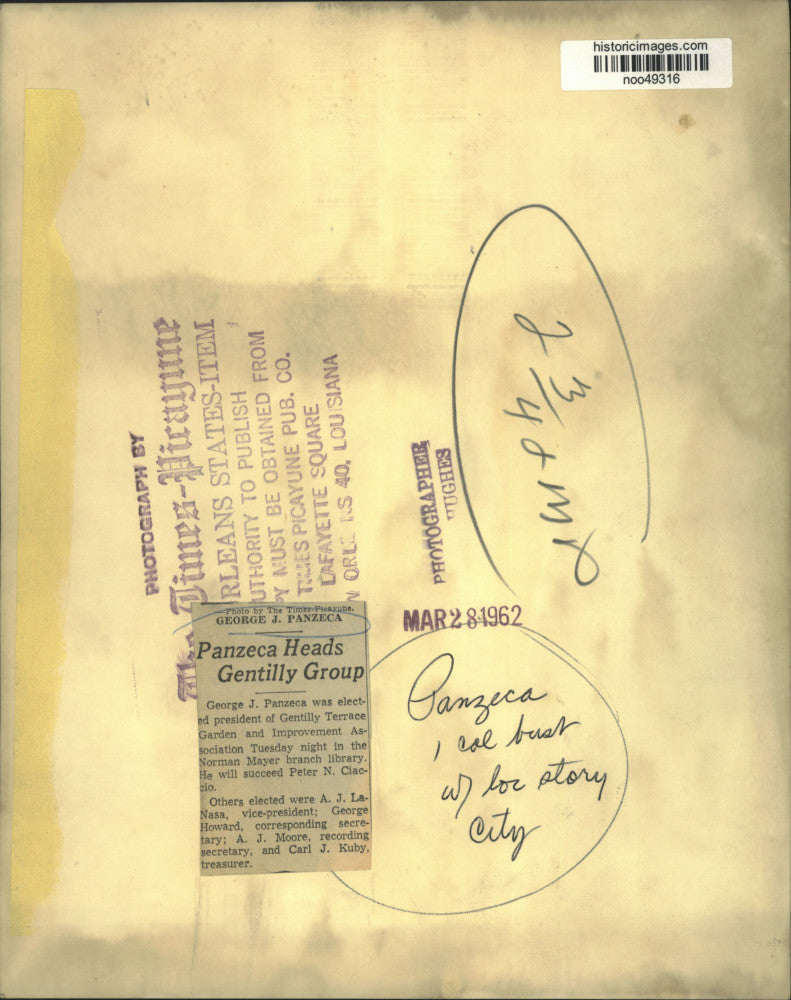 historicimages.com
noo49316
PHOTOGRAPH BY
The Times-Picayune
RLEANS STATES-ITEM
UTHORITY TO PUBLISH
Y MUST BE OBTAINED FROM
TIMES PICAYUNE PUB. CO.
LAFAYETTE SQUARE
ORL NS 40, LOUISIANA
PHOTOGRAPHER
HUGHES
2 3/4
MAR 28 1962
Photo by The Times-Picayune.
GEORGE J. PANZECA
Panzeca Heads
Gentilly Group
George J. Panzeca was elect-
ed president of Gentilly Terrace
Garden and Improvement As-
sociation Tuesday night in the
Norman Mayer branch library.
He will succeed Peter N. Ciac-
cio.
Others elected were A. J. La-
Nasa, vice-president; George
Howard, corresponding secre-
tary; A. J. Moore, recording
secretary, and Carl J. Kuby,
treasurer.
Panzeca
1 col bust
w/ loc story
City